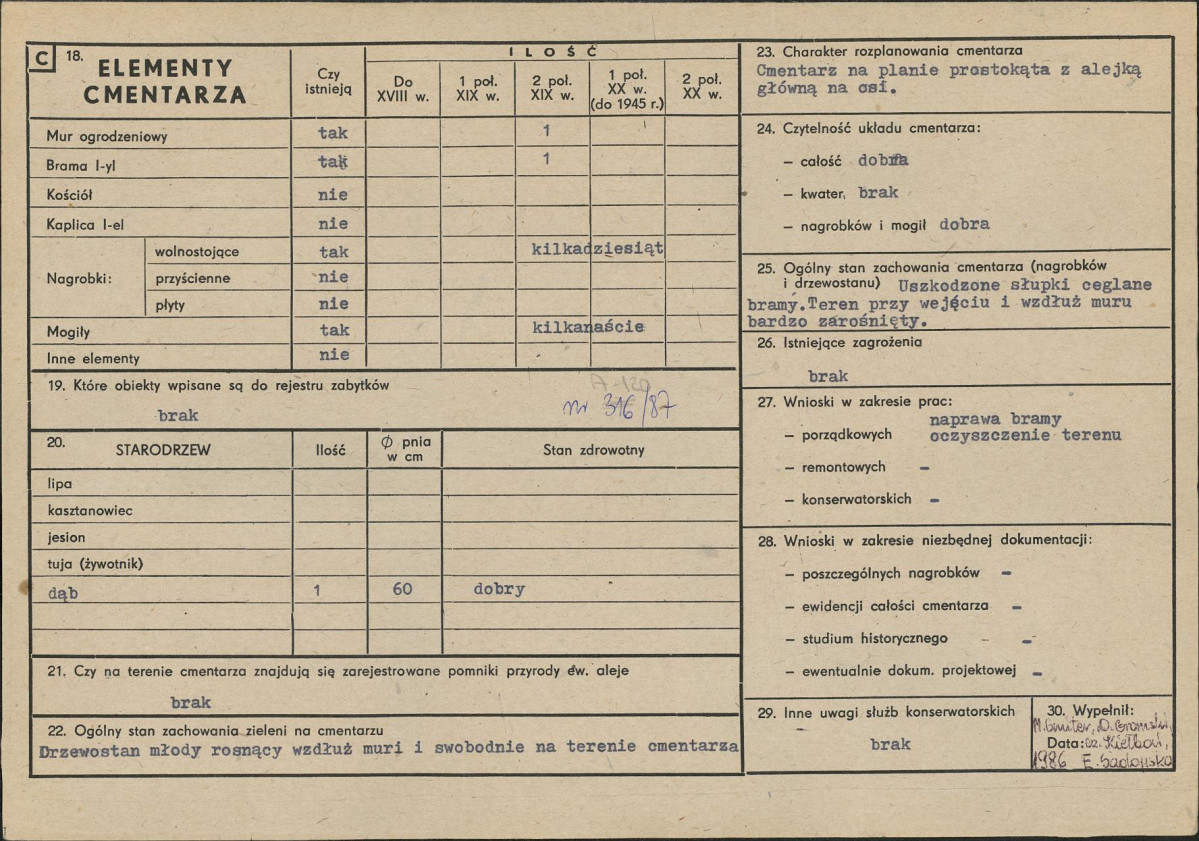 C 18. ELEMENTY CMENTARZA
Czy istnieją
ILOŚĆ
Do XVIII w.
1 poł. XIX w.
2 poł. XIX w.
1 poł. XX w. (do 1945 r.)
2 poł. XX w.
Mur ogrodzeniowy tak 1
Brama I-yl tak 1
Kościół nie
Kaplica I-el nie
Nagrobki:
wolnostojące tak kilkadziesiąt
przyścienne nie
płyty nie
Mogiły tak kilkanaście
Inne elementy nie
19. Które obiekty wpisane są do rejestru zabytków
A-120
brak nr 316/87
20. STARODRZEW Ilość Ø pnia w cm Stan zdrowotny
lipa
kasztanowiec
jesion
tuja (żywotnik)
dąb 1 60 dobry
21. Czy na terenie cmentarza znajdują się zarejestrowane pomniki przyrody ew. aleje
brak
22. Ogólny stan zachowania zieleni na cmentarzu
Drzewostan młody rosnący wzdłuż muri i swobodnie na terenie cmentarza
23. Charakter rozplanowania cmentarza
Cmentarz na planie prostokąta z alejką
główną na osi.
24. Czytelność układu cmentarza:
– całość dobra
– kwater, brak
– nagrobków i mogił dobra
25. Ogólny stan zachowania cmentarza (nagrobków
i drzewostanu) Uszkodzone słupki ceglane
bramy.Teren przy wejściu i wzdłuż muru
bardzo zarośnięty.
26. Istniejące zagrożenia
brak
27. Wnioski w zakresie prac:
naprawa bramy
– porządkowych oczyszczenie terenu
– remontowych –
– konserwatorskich –
28. Wnioski w zakresie niezbędnej dokumentacji:
– poszczególnych nagrobków –
– ewidencji całości cmentarza –
– studium historycznego –
– ewentualnie dokum. projektowej –
29. Inne uwagi służb konserwatorskich
brak
30. Wypełnił:
Data:
1986